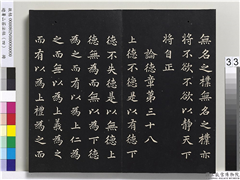 無名之樸無名之樸亦
將不欲不欲以靜天下
將自正
論德章第三十八
上德不德是以有德下
德不失德是以無德上
德無為而無以為下德
為之而有以為上仁為
之而無以為上義為之
而有以為上禮為之而
33